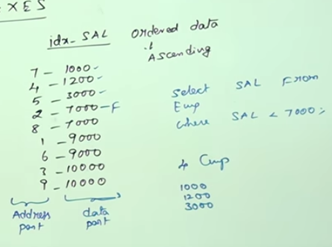 XES
idx_SAL ordered data
Ascending
7 - 1000 -
4 - 1200 -
5 - 3000 -
2 - 7000 - F
8 - 7000
1 - 9000
6 - 9000
3 - 10000
9 - 10000
Address part
data part
Select SAL From
Emp
where SAL < 7000;
4 Cmp
1000
1200
3000